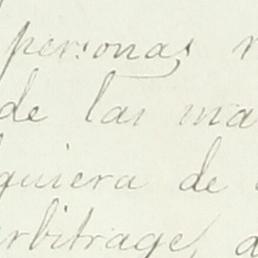 personas
de las ma
quiera de
rbitrage,